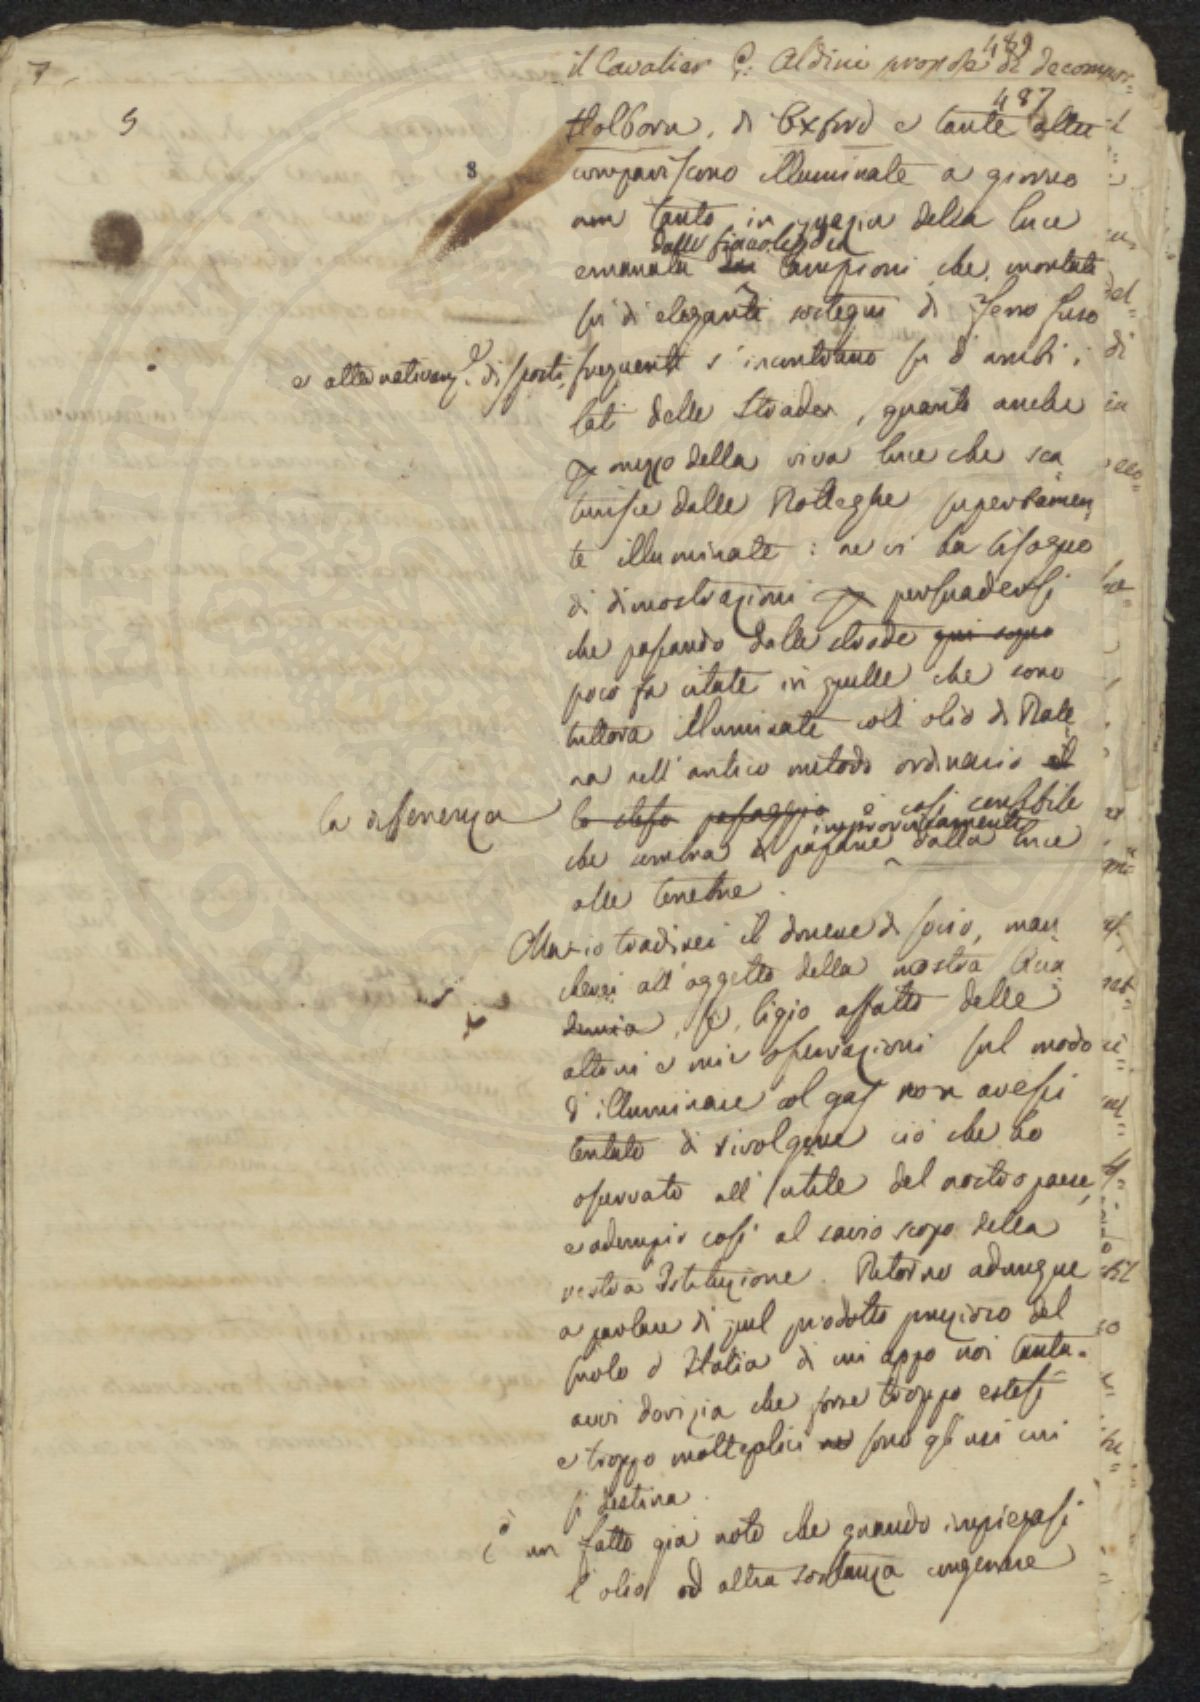 7
489
il Cavalier G. Aldini propose di decompor=
5
487
Holborn, di Oxford e tante altre
8
compariscono illuminate a giorno
non tanto in grazia della luce
dalle fiaccole dei
emanata dai lampioni che montati
su di eleganti sostegni di ferro fuso
e alternativam.e disposti
frequenti s'incontrano su d'ambi i
lati delle Strade, quanto anche
per mezzo della viva luce che sca
turisce dalle Botteghe superbamen
te illuminate: ne vi ha bisogno
di dimostrazioni per persuadersi
che passando dalle strade qui sopra
poco fa citate in quelle che sono
tuttora illuminate coll'olio di Bale
na nell'antico metodo ordinario il
la differenza
lo stesso passaggio è così sensibile
improvvisamente
che sembra di passare dalla luce
alle tenebre.
Ma io tradirei il dovere di socio, man
cherei all'oggetto della nostra Acca
demia, se, ligio affatto delle
altrui e mie osservazioni sul modo
d'illuminare col gas non avessi
tentato di rivolgere ciò che ho
osservato all'utile del nostro paese,
e adempir così al savio scopo della
vostra Istituzione. Ritorno adunque
a parlare di quel prodotto prezioso del
suolo d'Italia di cui appo noi tanta
avvi dovizia che forse troppo estesi
e troppo molteplici sono gli usi cui
si destina.
è un fatto già noto che quando impiegasi
l'olio od altra sostanza congenere